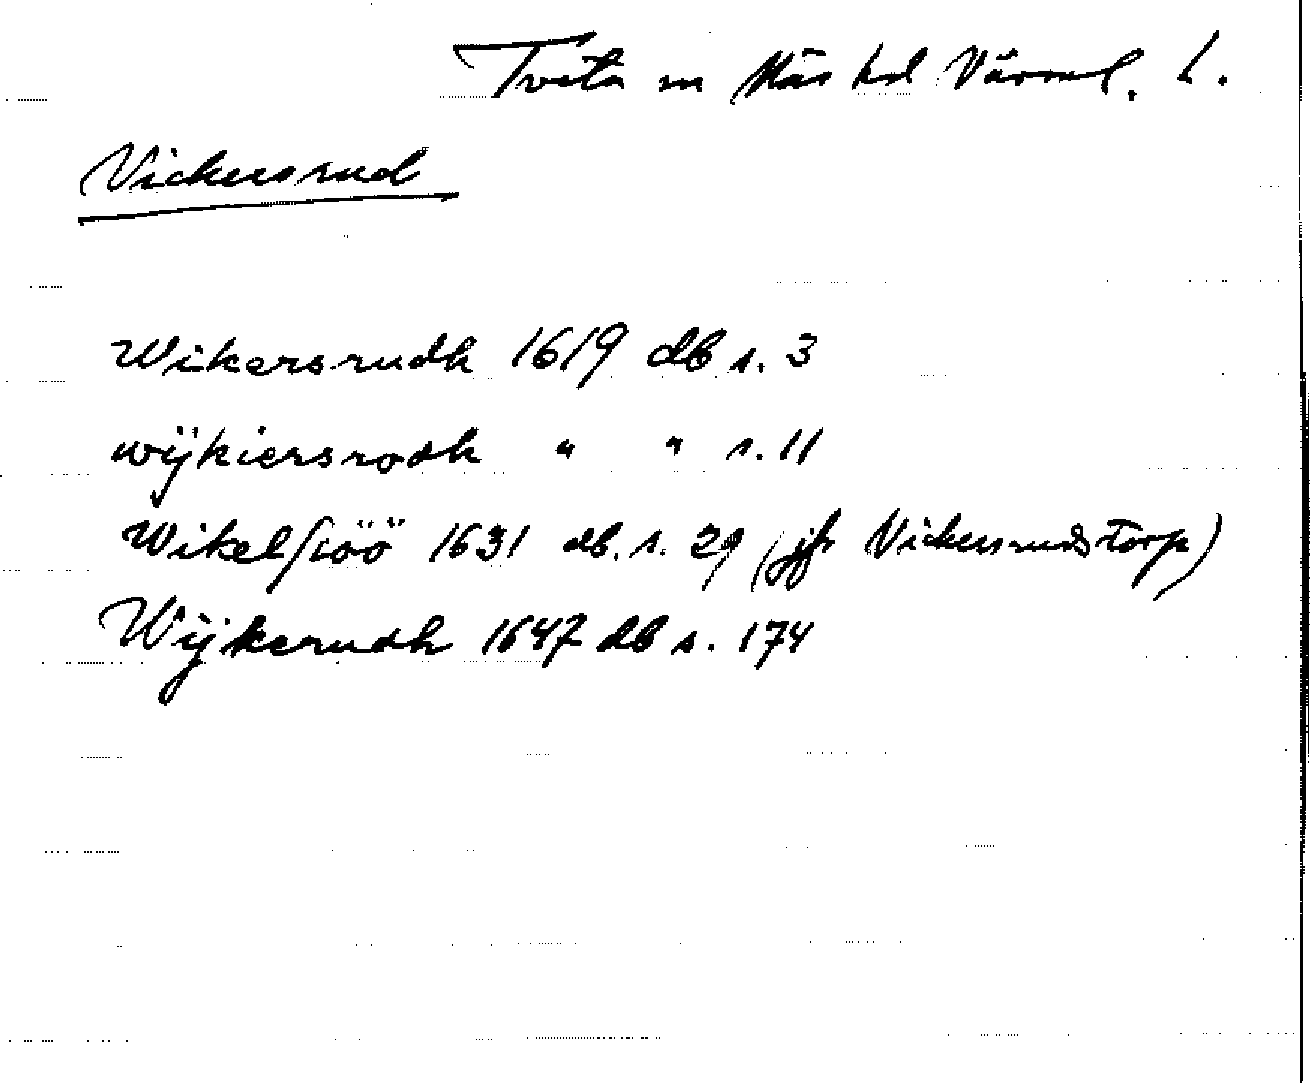 Tveta sn Näs hd Värml. L.
Vickersrud
Wikersrudh 1619 db s. 3
wijkiersrodh " " s. 11
Wikelsiöö 1631 db. s. 29 (jfr Vickersrudstorp)
Wijkerudh 1647 db s. 174